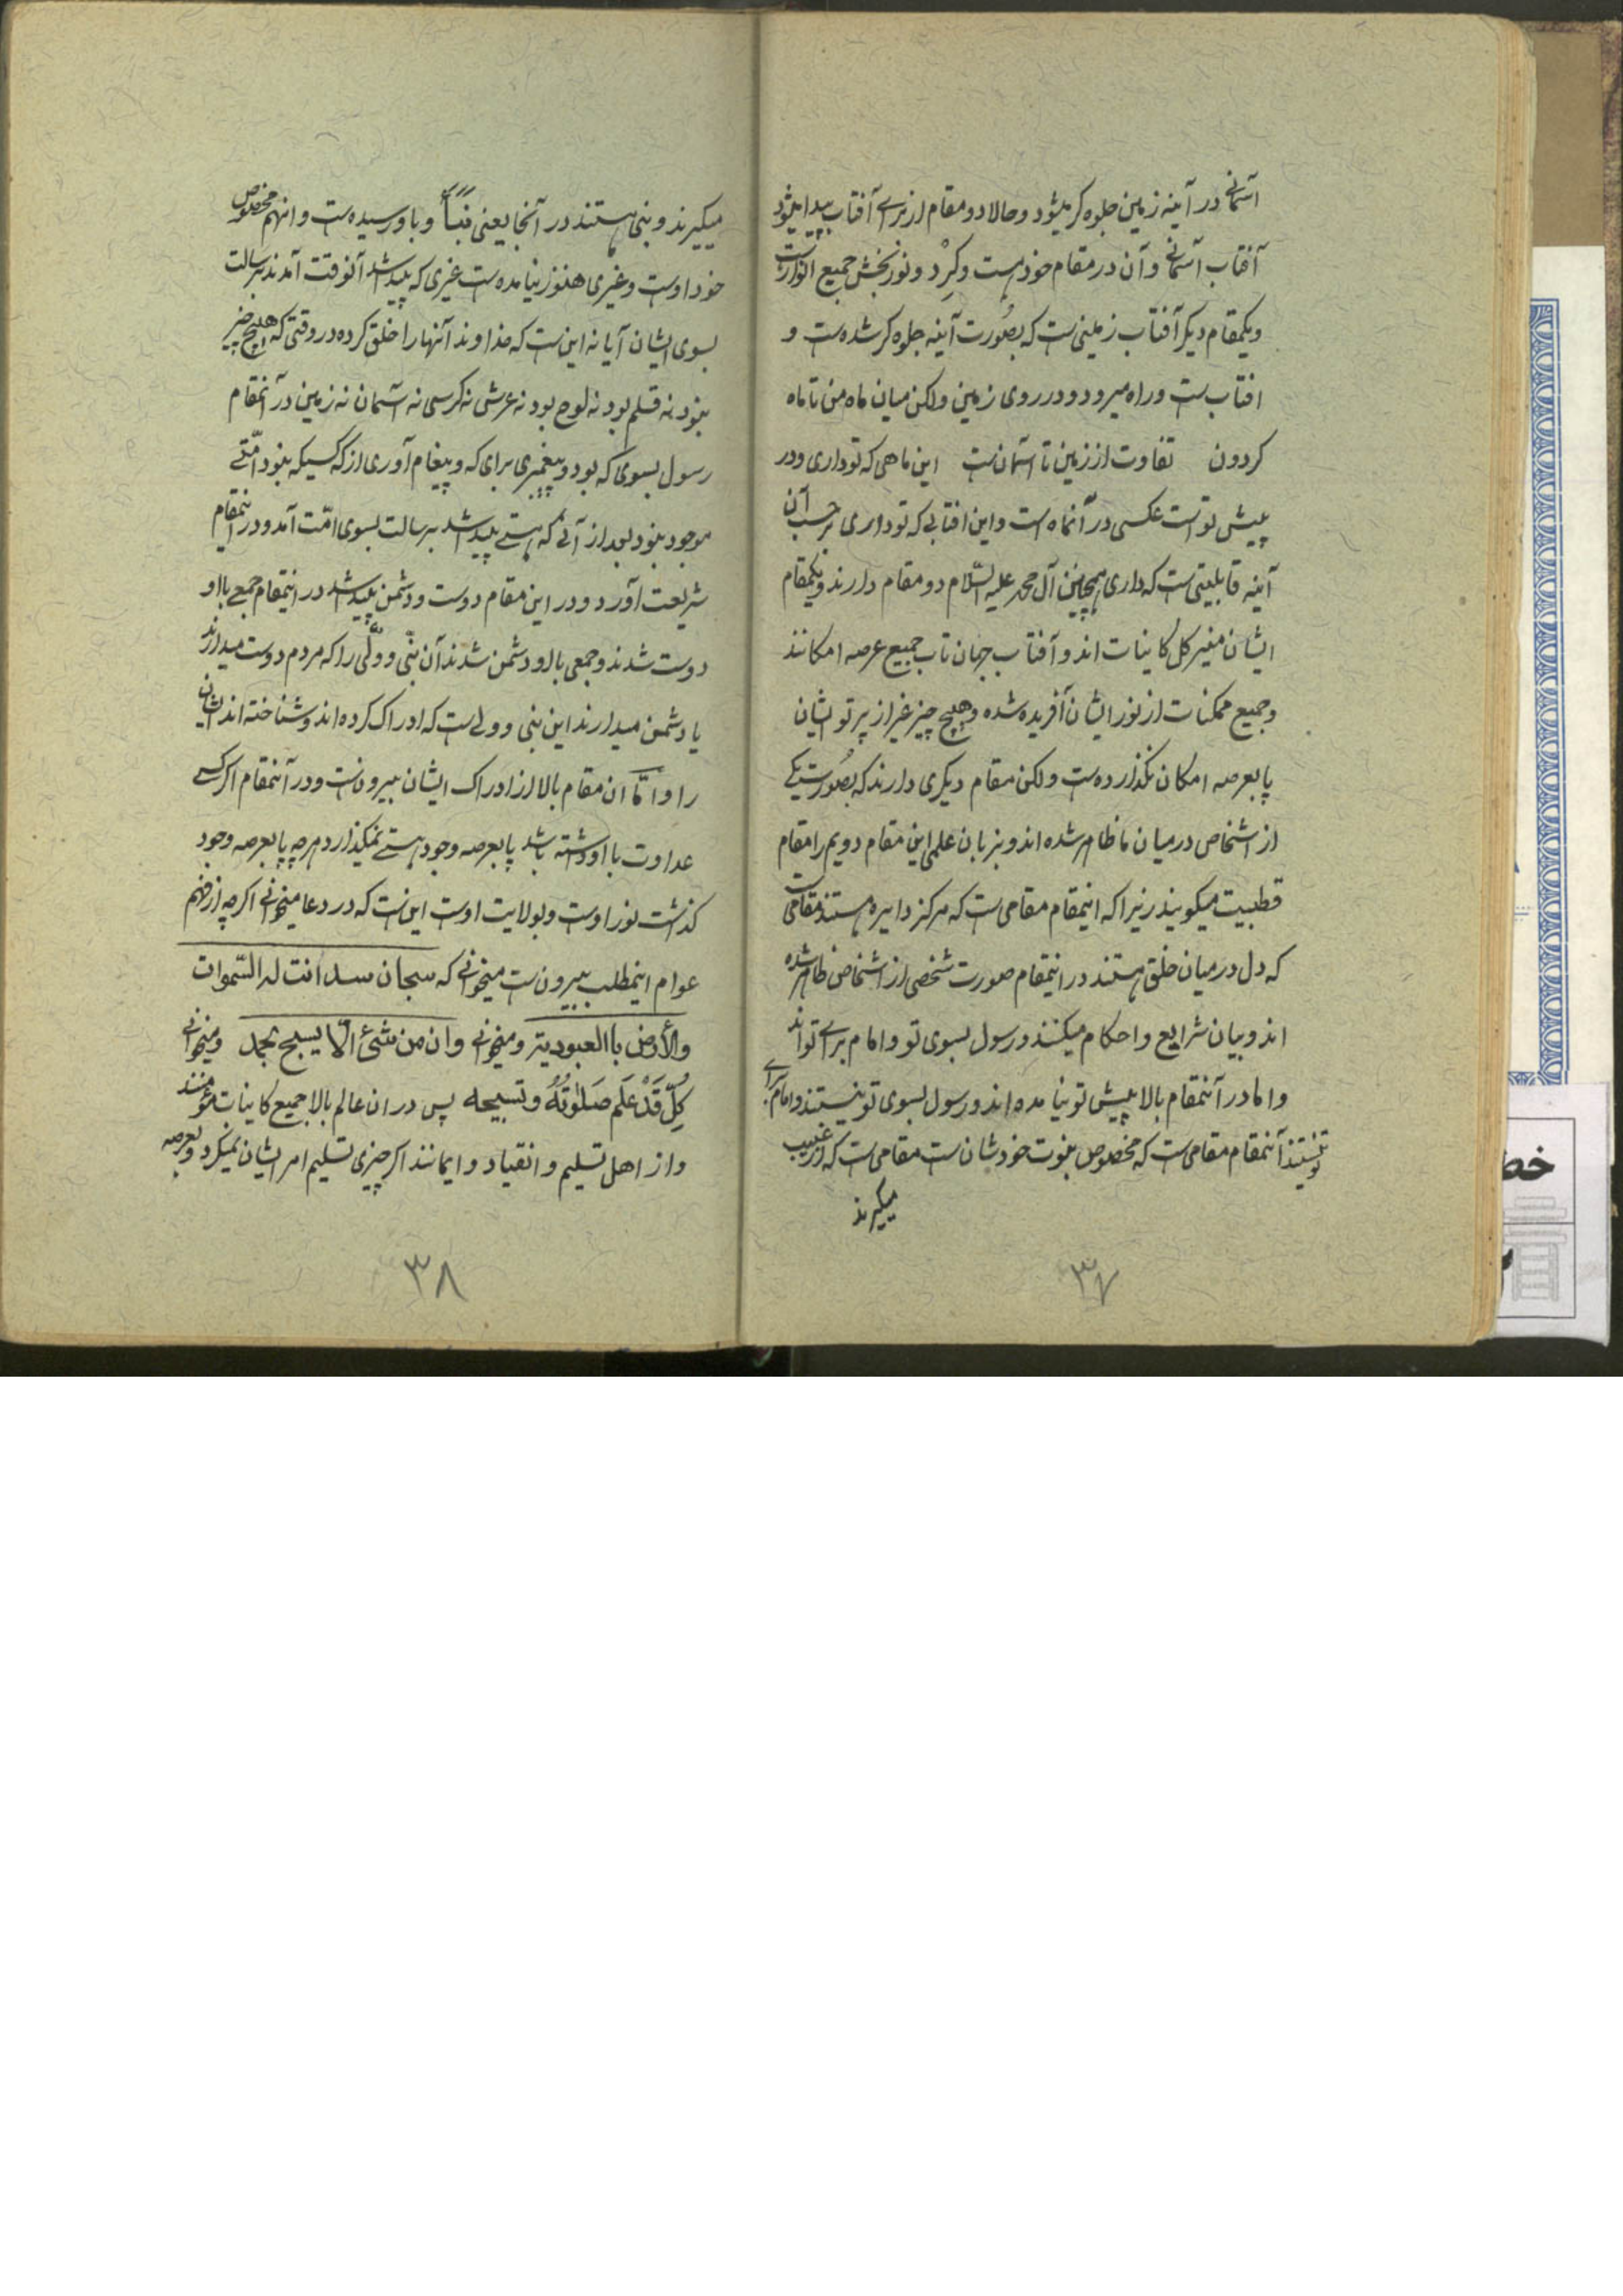 آسمانی در آینه زمین جلوه گر میشود و حالا دو مقام از برای آفتاب پیدا میشود
آفتاب آسمانی و آن در مقام خود هست و گرد و نور بخش جمیع انوار است
و یکمقام دیگر آفتاب زمینی است که بصورت آینه جلوه گر شده است و
افتاب است و راه میرود و در روی زمین ولکن میان ماه من تا ماه
گردون تفاوت از زمین تا آسمان است این ماهی که تو داری و در
پیش تو است عکسی در آنماه است و این افتابی که تو داری بر حسب آن
آینه قابلیتی است که داری همچنین آل محمد علیه السلام دو مقام دارند و یکمقام
ایشان منیر کل کاینات اند و آفتاب جهان تاب جمیع عرصه امکانند
و جمیع ممکنات از نور ایشان آفریده شده و هیچ چیز غیر از پرتو ایشان
پا بعرصه امکان نگذارده است ولکن مقام دیگری دارند که بصورت یکی
از اشخاص در میان ما ظاهر شده اند و بزبان علمی این مقام دویم را مقام
قطبیت میگویند زیرا که اینمقام مقامی است که مرکز دایره هستند مقامی است
که دل در میان خلق هستند در اینمقام صورت شخصی از اشخاص ظاهر شده
اند و بیان شرایع و احکام میکنند و رسول بسوی تو و امام برای تو اند
و اما در آنمقام بالا پیش تو نیامده اند و رسول بسوی تو نیستند و امام برای
تو نیستند آنمقام مقامی است که مخصوص نبوت خودشان است مقامی است که از غیب
میگیرند
۳۷
میگیرند و نبی هستند در آنجا یعنی نبأ و باو رسیده است و انهم مخصوص
خود اوست و غیری هنوز نیامده است غیری که پیدا شد آنوقت آمدند برسالت
بسوی ایشان آیا نه این است که خداوند آنها را خلق کرده در وقتی که هیچ چیز
نبود نه قلم بود نه لوح بود نه عرش نه کرسی نه آسمان نه زمین در آنمقام
رسول بسوی که بود و پیغمبری برای که و پیغام آوری از که کسیکه نبود امّتی
موجود نبود بعد از آنی که هستی پیدا شد برسالت بسوی امّت آمد و در اینمقام
شریعت آورد و در این مقام دوست و دشمن پیدا شد در اینمقام جمعی با او
دوست شدند و جمعی با او دشمن شدند آن نبّی و ولّی را که مردم دوست میدارند
یا دشمن میدارند این نبی و ولی است که ادراک کرده اند و شناخته اند ایشان
را و امّا ان مقام بالا از ادراک ایشان بیرونست و در آنمقام اگر کسی
عداوت با او داشته باشد پا بعرصه وجود هستی نمیگذارد هر چه پا بعرصه وجود
گذاشت نور اوست و بولایت اوست این است که در دعا میخوانی اگر چه از فهم
عوام اینمطلب بیرون است میخوانی که سبحان من دانت له السّموات
والأرض باالعبودیّة و میخوانی وان من شئ الّا یسبح بحمده و میخوانی
کُلّ قَدْ عَلَم صَلٰوتَهُ و تسبیحه پس در ان عالم بالا جمیع کاینات مؤمنند
و از اهل تسلیم و انقیاد و ایمانند اگر چیزی تسلیم امر ایشان نمیکرد بعرصه
۳۸
خط